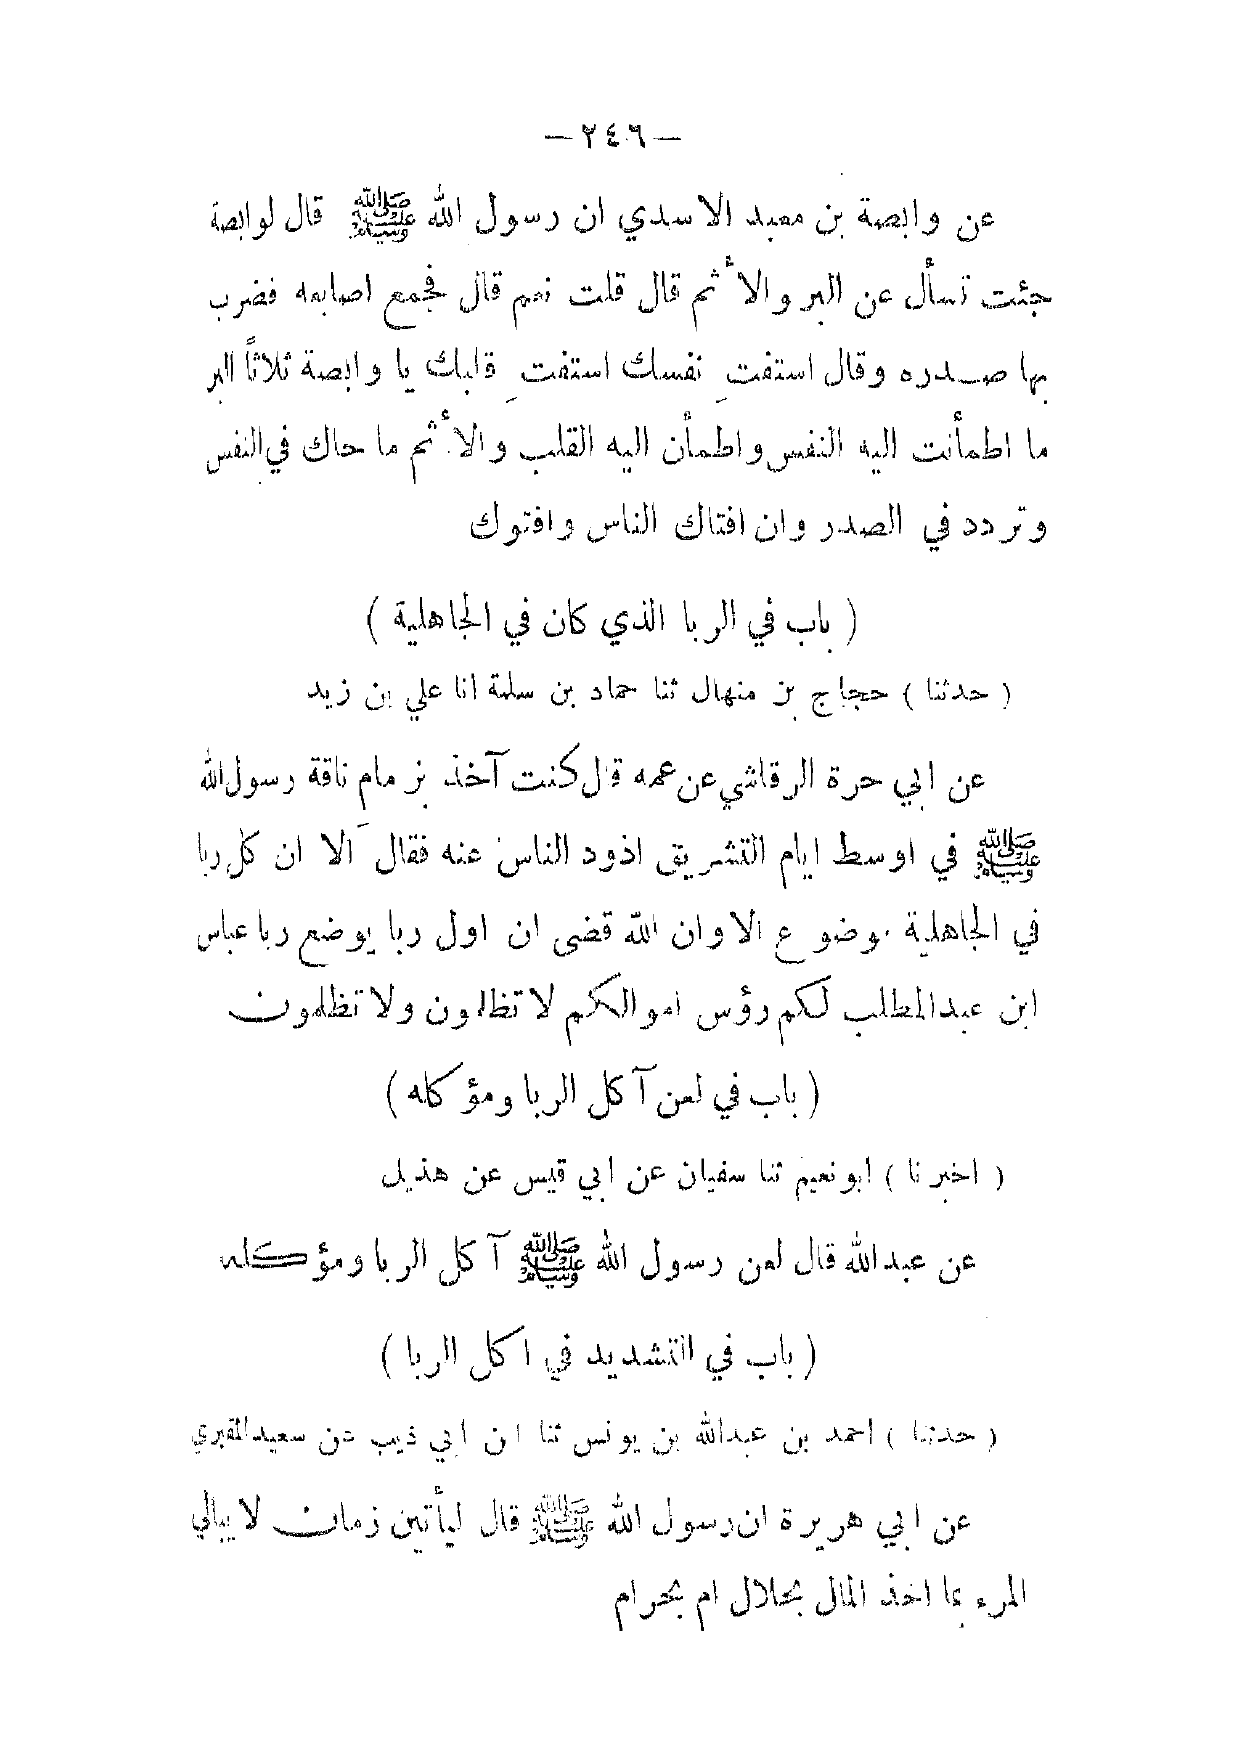 — ٢٤٦ —
عن وابصة بن معبد الاسدي ان رسول الله ﷺ قال لوابصة
جئت تسأل عن البر والأثم قال قلت نعم قال فجمع اصابعه فضرب
بها صدره وقال استفت نفسك استفت قلبك يا وابصة ثلاثاً البر
ما اطمأنت اليه النفس واطمأن اليه القلب والأثم ما حاك في النفس
وتردد في الصدر وان افتاك الناس وافتوك
( باب في الربا الذي كان في الجاهلية )
( حدثنا ) حجاج بن منهال ثنا حماد بن سلمة انا علي بن زيد
عن ابي حرة الرقاشي عن عمه قال كنت آخذ بزمام ناقة رسول الله
ﷺ في اوسط ايام التشريق اذود الناس عنه فقال الا ان كل ربا
في الجاهلية موضوع الا وان الله قضى ان اول ربا يوضع ربا عباس
ابن عبدالمطلب لكم رؤس اموالكم لا تظلمون ولا تظلمون
( باب في لعن آكل الربا ومؤكله )
( اخبرنا ) ابونعيم ثنا سفيان عن ابي قيس عن هذيل
عن عبدالله قال لعن رسول الله ﷺ آكل الربا ومؤكله
( باب في التشديد في اكل الربا )
( حدثنا ) احمد بن عبدالله بن يونس ثنا ابن ابي ذيب عن سعيدالمقبري
عن ابي هريرة ان رسول الله ﷺ قال ليأتين زمان لا يبالي
المرء بما اخذ المال بحلال ام بحرام